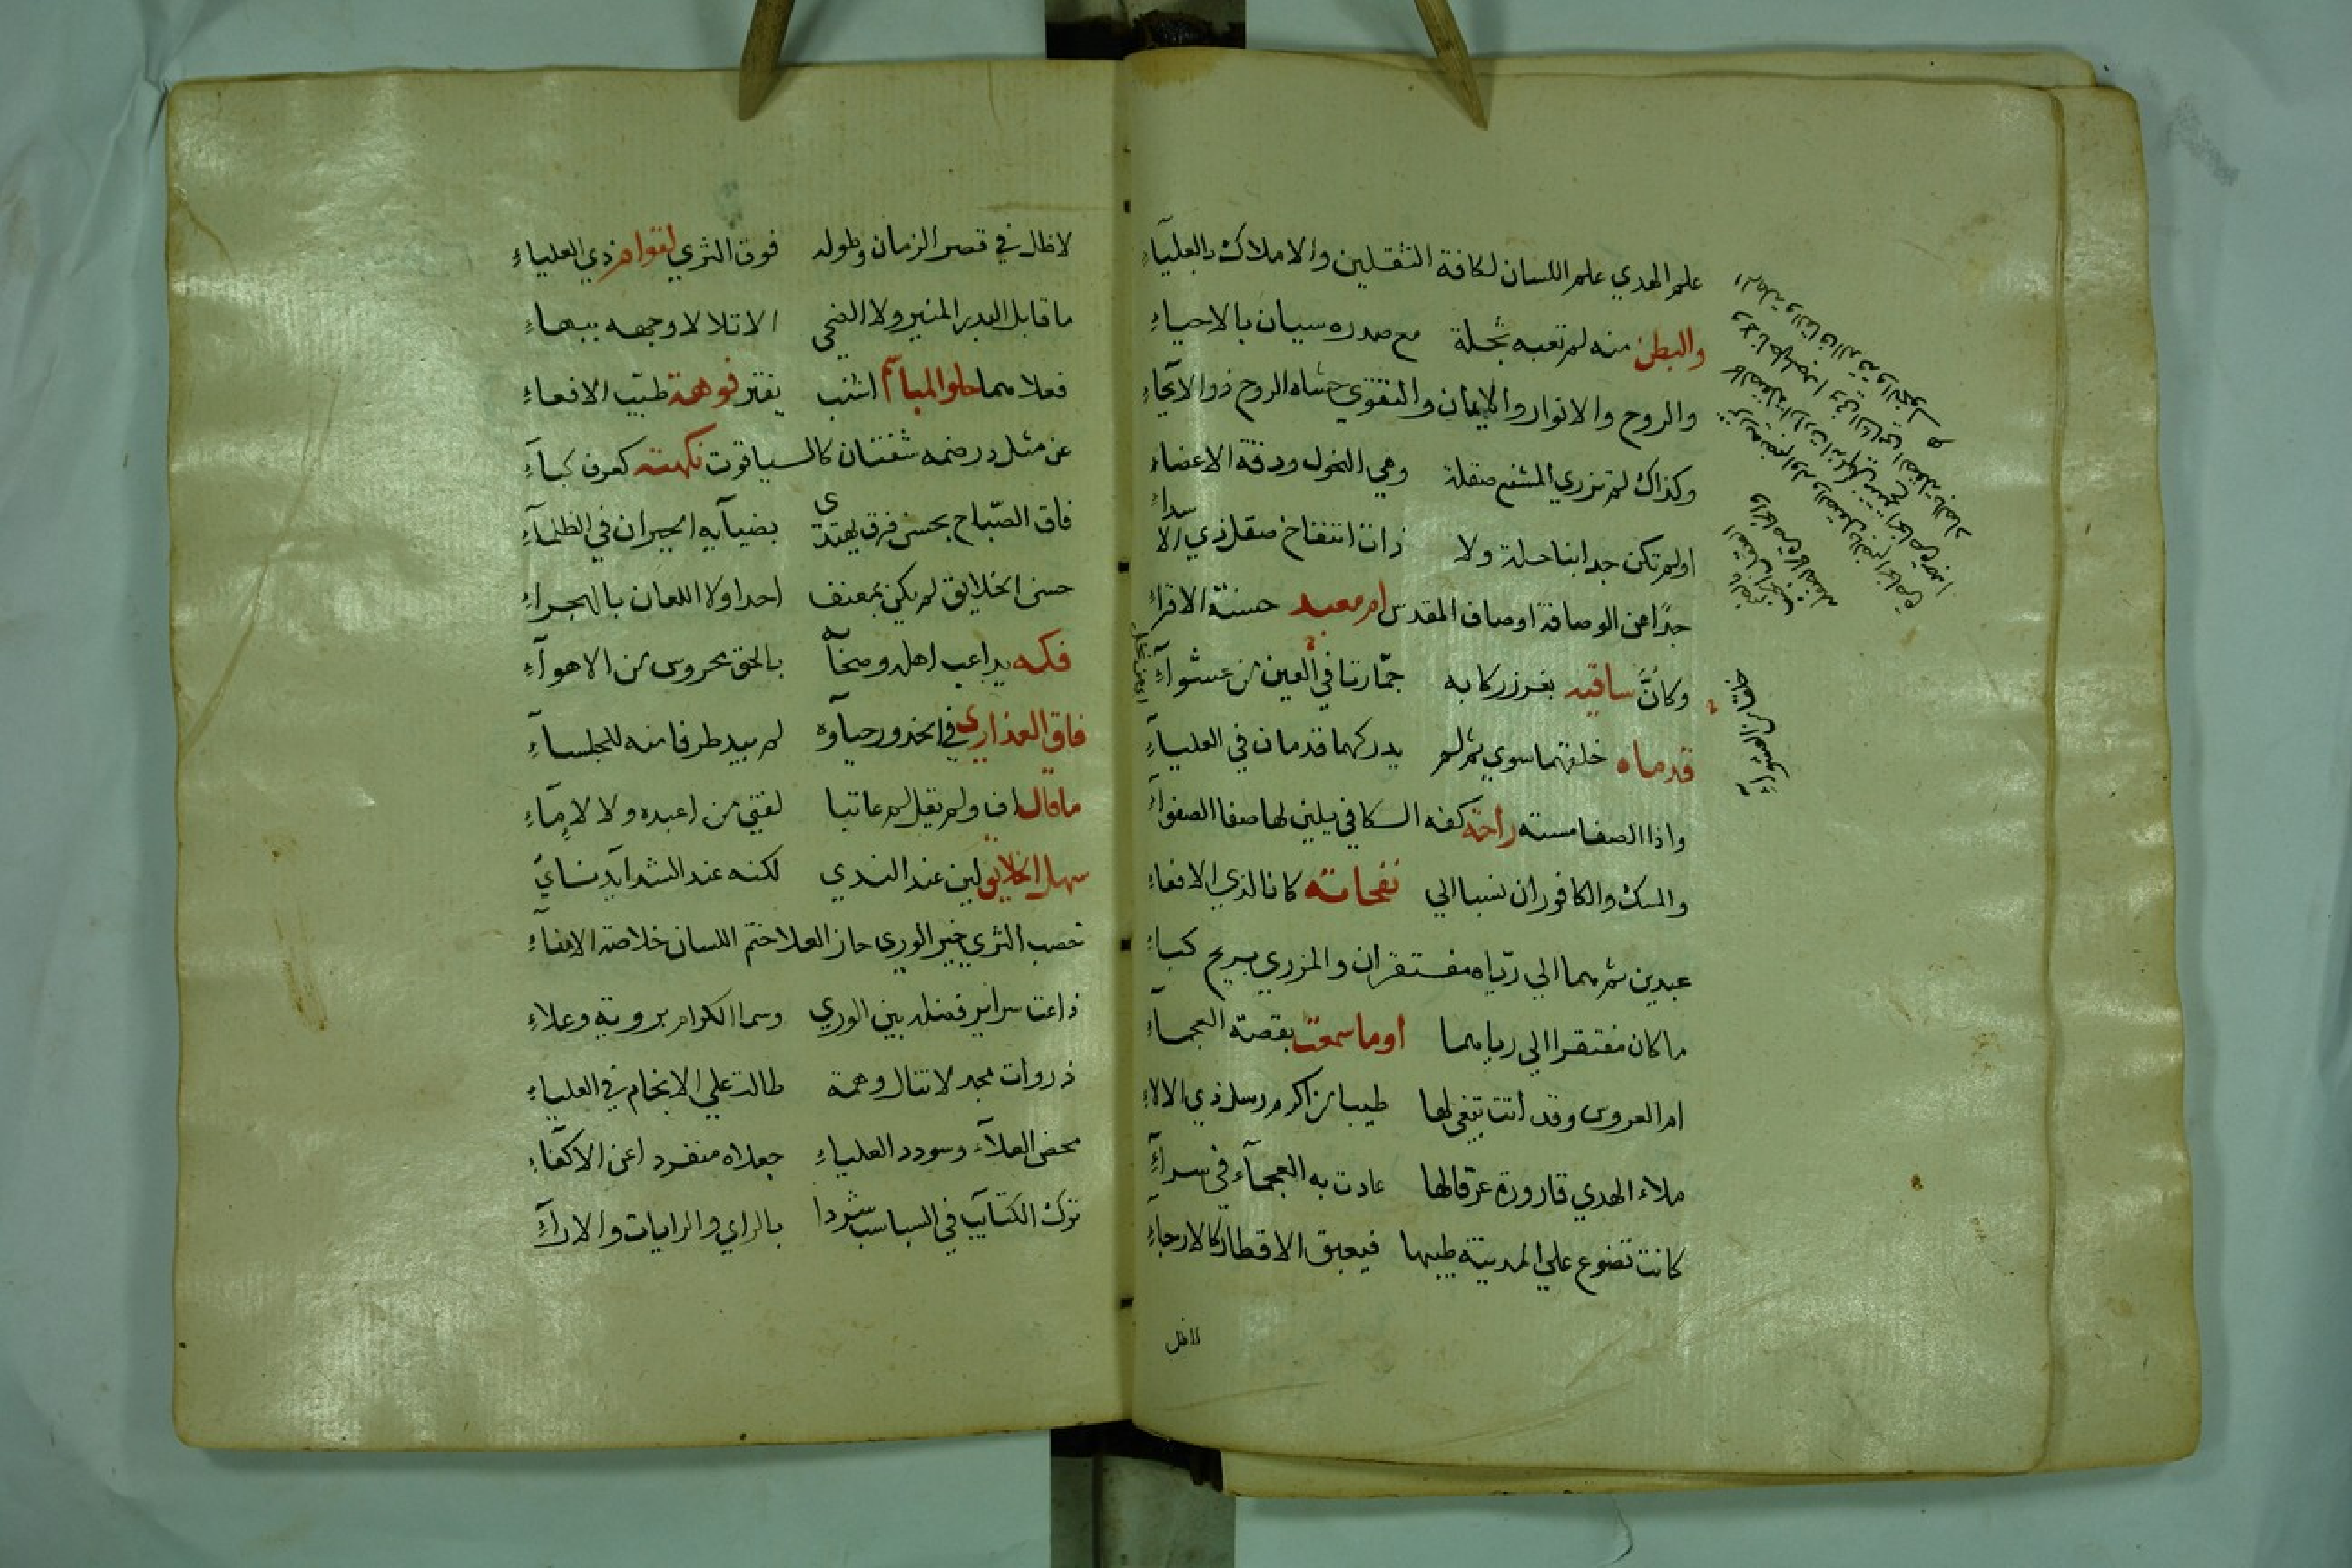 علم الهدي علم اللسان لكافة الثقلين والاملاك بالعليآء
والبطن منه لم تعبه ثجلة مع صدره سيان بالاحياء
والروح والانوار والايمان والتقوي حشاه الروح ذو الآ
وكذاك لم تزري المشفع صقلة وهي النحول ودقة الاعضاء
اولم تكن جدا بنا حلة ولا ذات انتفاخ صقل ذي الا سداء
جدا عن الوصافة اوصاف المقدس ام معبد حسنة الاقراء
وكانَّ ساقيه بغرز ركابه جمّارتا في العين من عشوآء
قدماه خلقتهما سوي ثم لم يدركهما قدمان في العليآء
واذا الصفا مسته راحة كفه الكافي يلين لها صفا الصفواء
والمسك والكافور ان نسبا الي نفحاته كانا لذي الافعاء
عبدين ثم هما الي ريّاه مفتقران والمزري بريح كباء
ما كان مفتقرا الي رياهما اوما سمعت بقصة العجماء
ام العروس وقد اتت تبغي لها طيبا من اكرم رسل ذي الالاء
ملاء الهدي قارورة عرقا لها عادت به العجمآء في سرآء
كانت تضوع علي المدينة طيبها فيعبق الاقطار كالارجاء
لاظل
لاظل في قصر الزمان وطوله فوق الثري لقوام ذي العلياء
ما قابل البدر المنير ولا الضحي الا تلالا وجهه ببهاء
فعلاهما حلو المباسم اشنب يفتر فوهة طيّب الافعاء
عن مثل در ضمه شفتان كالسياقوت نكهته كعرف كبآء
فاق الصّباح بحسن فرق يهتدي بضيآيه الحيران في الظلمآء
حسن الخلايق لم يكن بمعنف احدا ولا اللعان بالهجراء
فكه يداعب اهله وصحابه بالحق محروس من الاهوآء
فاق العذاري في الخدور حيآوه لم يبد طرفا منه للجلسآء
ما قال اف ولم يقل لم عاتبا لفتي من اعبده ولا لاِمآء
سهل الخلايق لين عند الندي لكنه عند الشدآيد نسآي
خصب الثري خير الوري حاز العلا ختم اللسان خلاصة الامنآء
ذاعت سراير فضله بين الوري وسما الكرام بروية وعلاء
ذروات مجد لا تنال وهمة طالت علي الانجام في العلياء
محض العلآء وسودد العلياء جعلاه منفردا عن الاكفآء
ترك الكتآيب في السباسب شردا بالراي والرايات والارآء